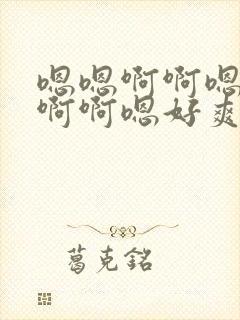 嗯嗯啊啊嗯
啊啊嗯好爽
葛克銘